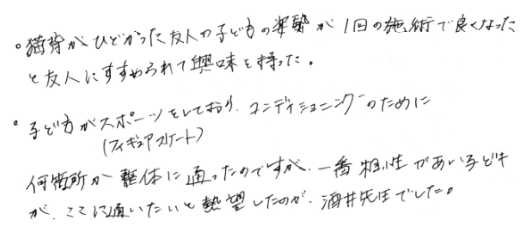 ・猫背がひどかった友人の子どもの姿勢が1回の施術で良くなった
と友人にすすめられて興味を持った。
・子どもがスポーツをしており、コンディショニングのために
(フィギュアスケート)
何箇所か整体に通ったのですが、一番相性があい子ども
が、ここに通いたいと熱望したのが、酒井先生でした。